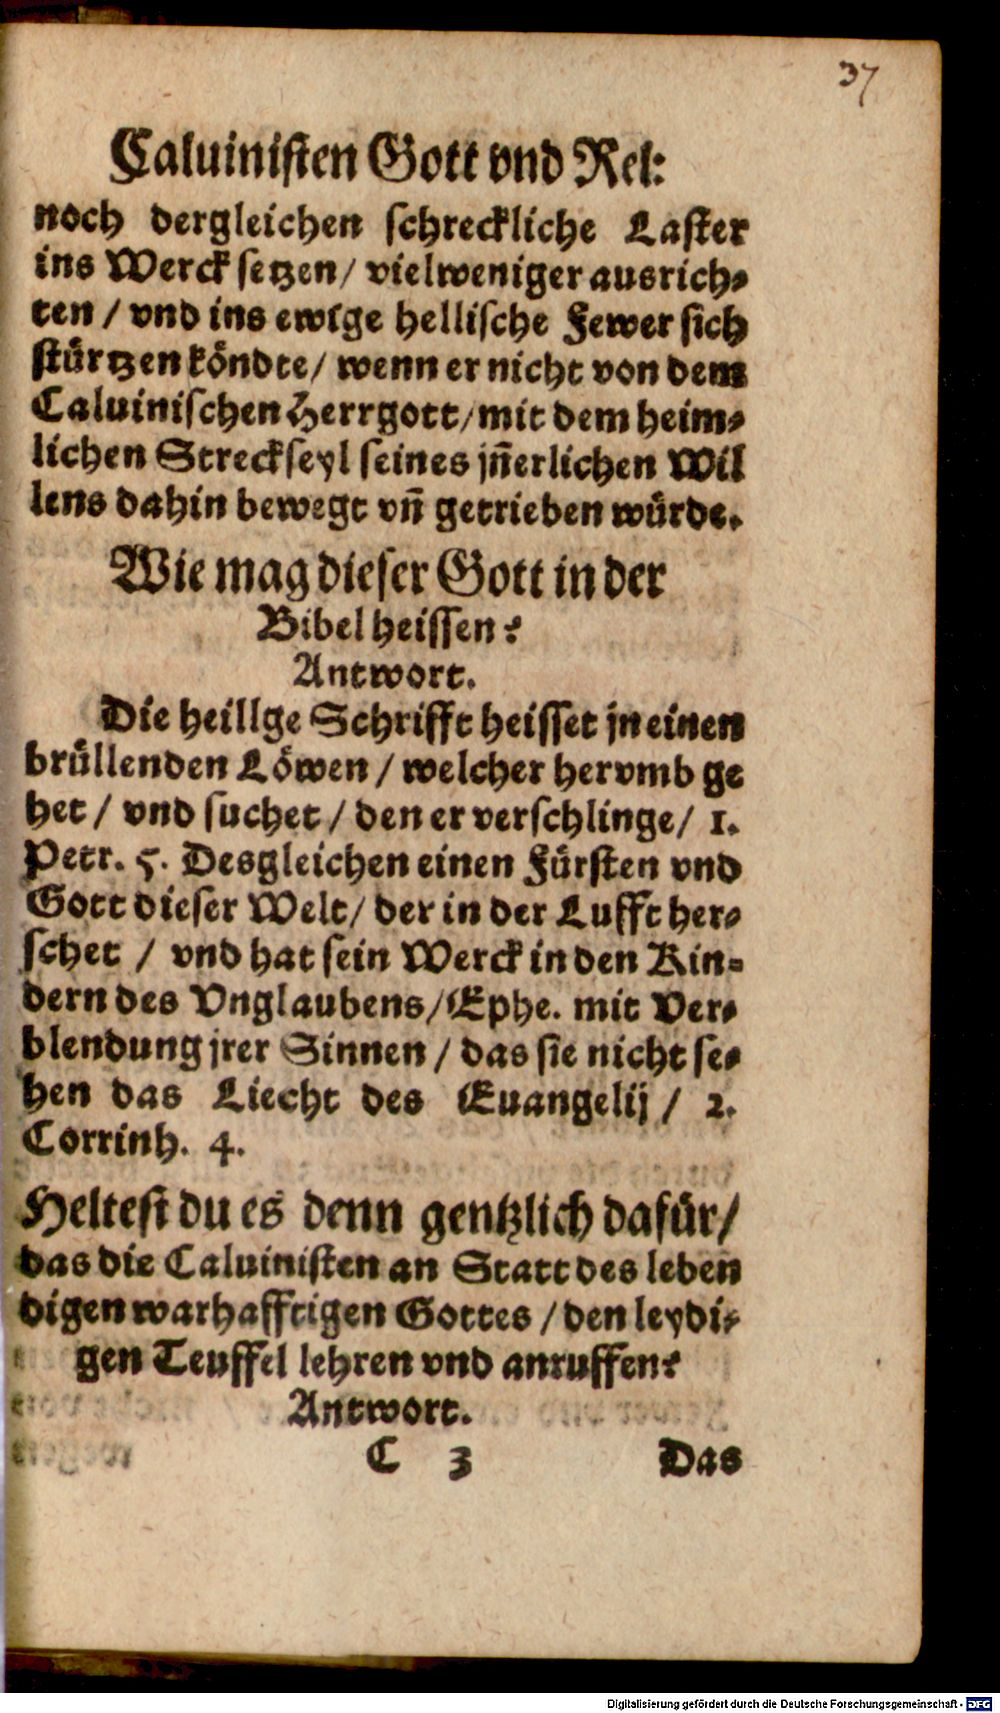 37
Caluinisten Gott vnd Rel:
noch dergleichen schreckliche Laster
ins Werck setzen / vielweniger ausrich⸗
ten / vnd ins ewige hellische Fewer sich
stürtzen köndte / wenn er nicht von dem
Caluinischen Herrgott / mit dem heim⸗
lichen Streckseyl seines jñerlichen Wil
lens dahin bewegt vñ getrieben würde.
Wie mag dieser Gott in der
Bibel heissen?
Antwort.
Die heillge Schrifft heisset jn einen
brüllenden Löwen / welcher hervmb ge
het / vnd suchet / den er verschlinge / 1.
Petr. 5. Desgleichen einen Fürsten vnd
Gott dieser Welt / der in der Lufft her⸗
schet / vnd hat sein Werck in den Kin⸗
dern des Vnglaubens / Ephe. mit Ver⸗
blendung jrer Sinnen / das sie nicht se⸗
hen das Liecht des Euangelij / 2.
Corrinh. 4.
Heltest du es denn gentzlich dafür /
das die Caluinisten an Statt des leben
digen warhafftigen Gottes / den leydi⸗
gen Teuffel lehren vnd anruffen?
Antwort.
C 3 Das
Digitalisierung gefördert durch die Deutsche Forschungsgemeinschaft - DFG